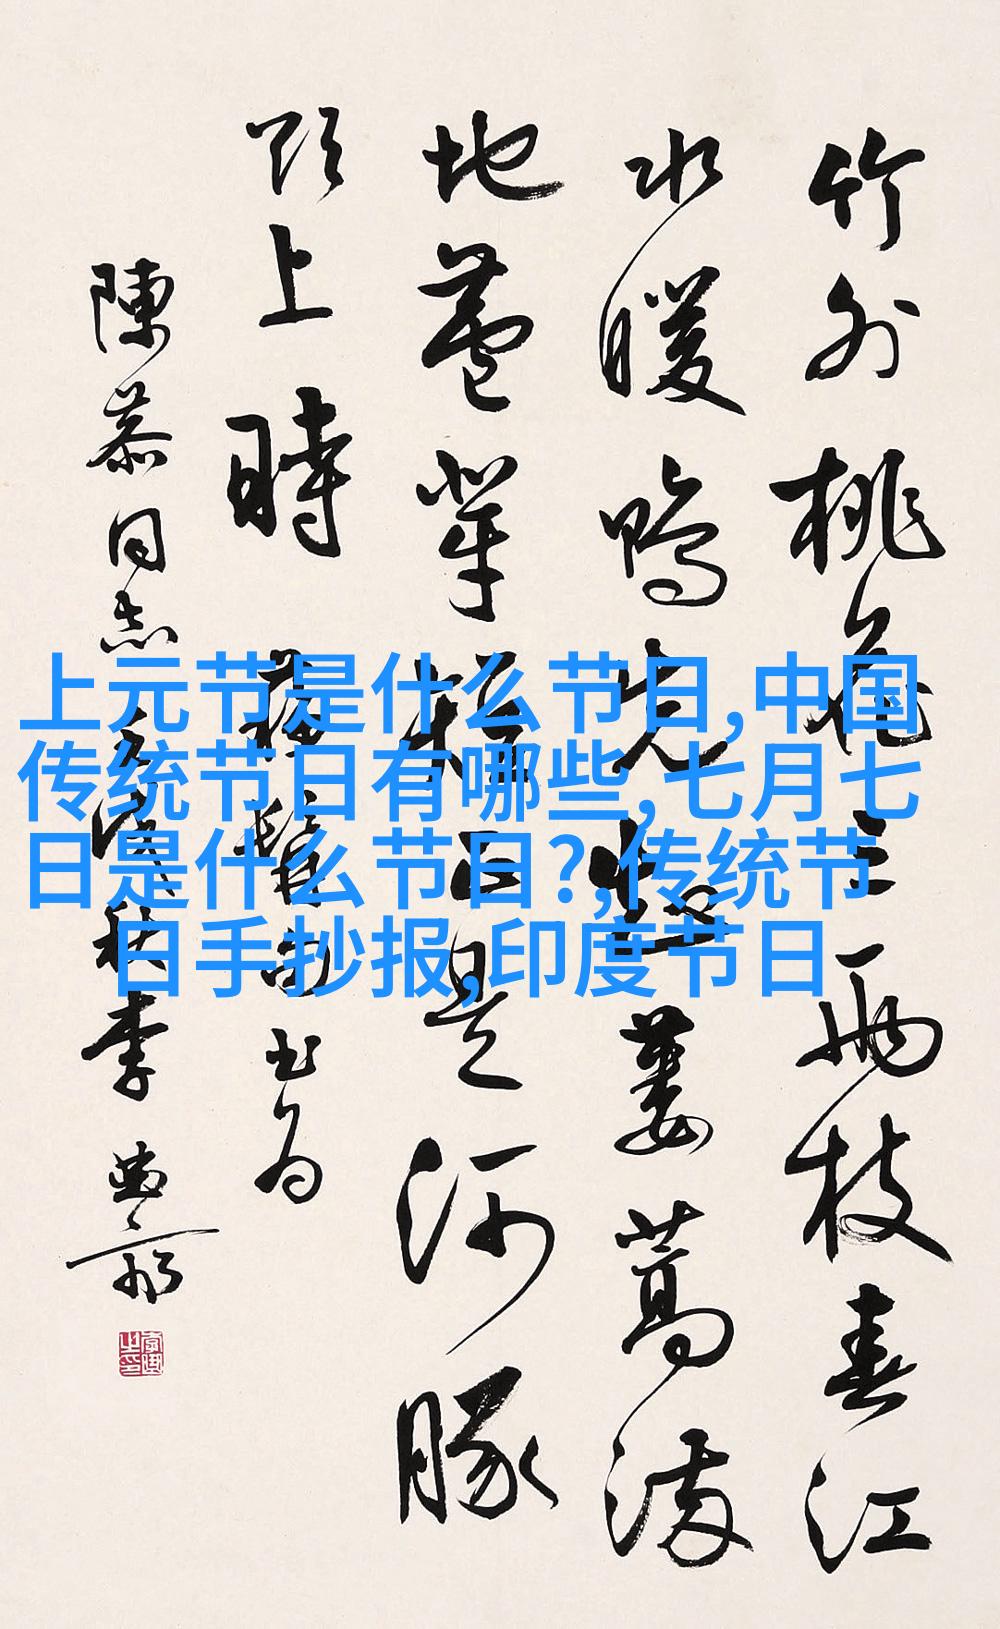 竹外桃花三兩枝春江
水暖鴨先知蔞蒿滿
地蘆芽短正是河豚
欲上時
同志
上元节是什么节日,中国
传统节日有哪些,七月七
日是什么节日?,传统节
日手抄报,印度节日